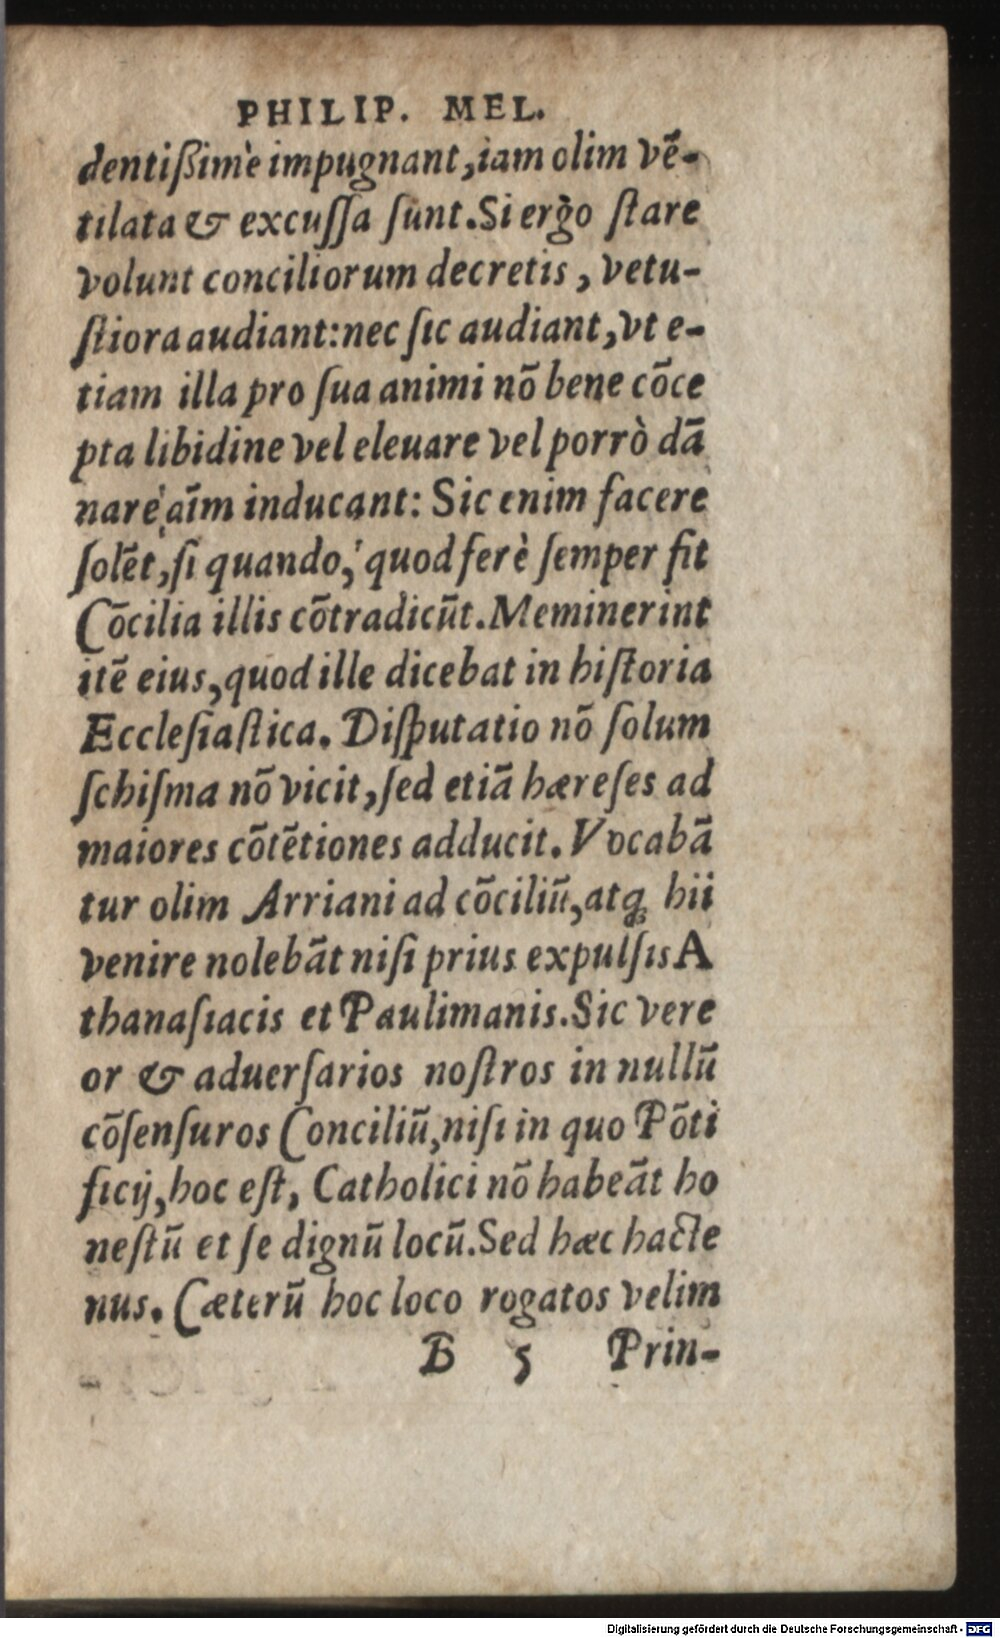 PHILIP. MEL.
dentißimè impugnant, iam olim vē-
tilata & excuſſa ſunt. Si ergò ſtare
volunt conciliorum decretis, vetu-
ſtiora audiant: nec ſic audiant, vt e-
tiam illa pro ſua animi nō bene cōce
pta libidine vel eleuare vel porrò dā
nare
inducant: Sic enim facere
ſolēt, ſi quando, quod ferè ſemper fit
Cōcilia illis cōtradicūt. Meminerint
itē eius, quod ille dicebat in hiſtoria
Eccleſiaſtica. Diſputatio nō ſolum
ſchiſma nō vicit, ſed etiā hæreſes ad
maiores cōtētiones adducit. Vocabā
tur olim Arriani ad cōciliū, atq; hii
venire nolebāt niſi prius expulſis A
thanaſiacis et Paulimanis. Sic vere
or & aduerſarios noſtros in nullū
cōſenſuros Conciliū, niſi in quo Pōti
ficij, hoc eſt, Catholici nō habeāt ho
neſtū et ſe dignū locū. Sed hæc hacte
nus. Cæterū hoc loco rogatos velim
B 5 Prin-
Digitalisierung gefördert durch die Deutsche Forschungsgemeinschaft - DFG